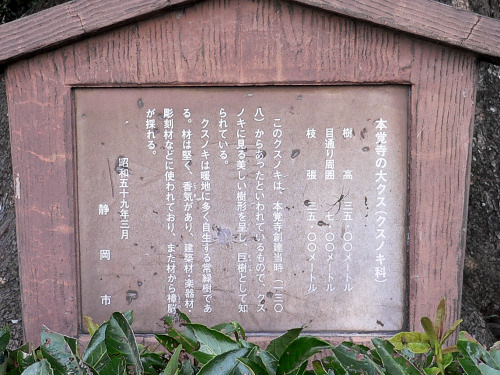 本覚寺の大クス(クスノキ科)
樹高 三五・〇〇メートル
目通り周囲 七・〇〇メートル
枝張 三五・〇〇メートル
このクスノキは、本覚寺創建当時(一三〇
八)からあったといわれているもので、クス
ノキに見る美しい樹形を呈し、巨樹として知
られている。
クスノキは暖地に多く自生する常緑樹であ
る。材は堅く、香気があり、建築材・楽器材・
彫刻材などに使われており、また材から樟脳
が採れる。
昭和五十九年三月
静岡市